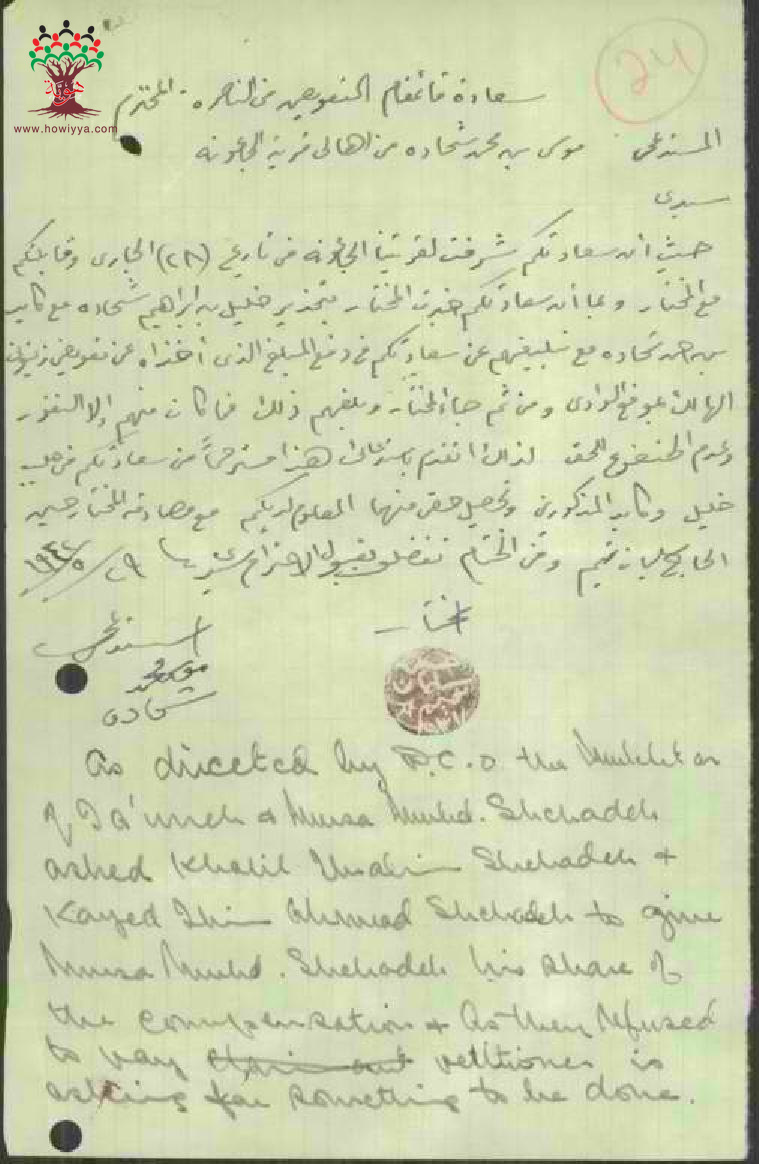 www.howiyya.com
24
سعادة قائمقام التعويض في الناصرة المحترم
المستدعي موسى بن محمد شحاده من اهالي قرية الجاعونه
سيدي
حيث أن سعادتكم شرفت لقريتنا الجاعونه في تاريخ (٢٨) الجاري وقابلتكم
مع المختار وبما أن سعادتكم خبرت المختار بتحذير خليل بن ابراهيم شحاده مع كايد
بن احمد شحاده مع تبليغهم عن سعادتكم في دفع المبلغ الذي أخذاه عن تعويض
الوادي ومن ثم جاء المختار وبلغهم ذلك فما كان منهم إلا النفور
وعدم الخضوع للحق لذلك اتقدم باستدعائي هذا مسترحماً من سعادتكم في جلب
خليل وكايد المذكورين وتحصيل حقي منهما المعلوم لديكم مع مصادقة المختار حسين
الحاج وفي الختام تفضلوا بقبول الاحترام سيدي ٢٩/٥/١٩٤٢
مختار
المستدعي
موسى محمد
شحاده
As directed by D.C.O the Mukhtar
of Ja'uneh & Musa Muhd. Shehadeh
asked Khalil Ibrahim Shehadeh &
Kayed Ibin Ahmad Shehadeh to give
Musa Muhd. Shehadeh his share of
the compensation & As they refused
to pay petitioner is
asking for something to be done.